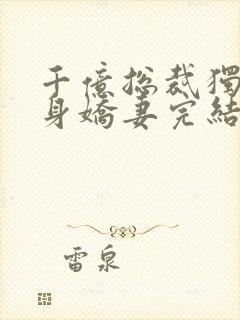 千億总裁獨
身嬌妻完結
雷泉